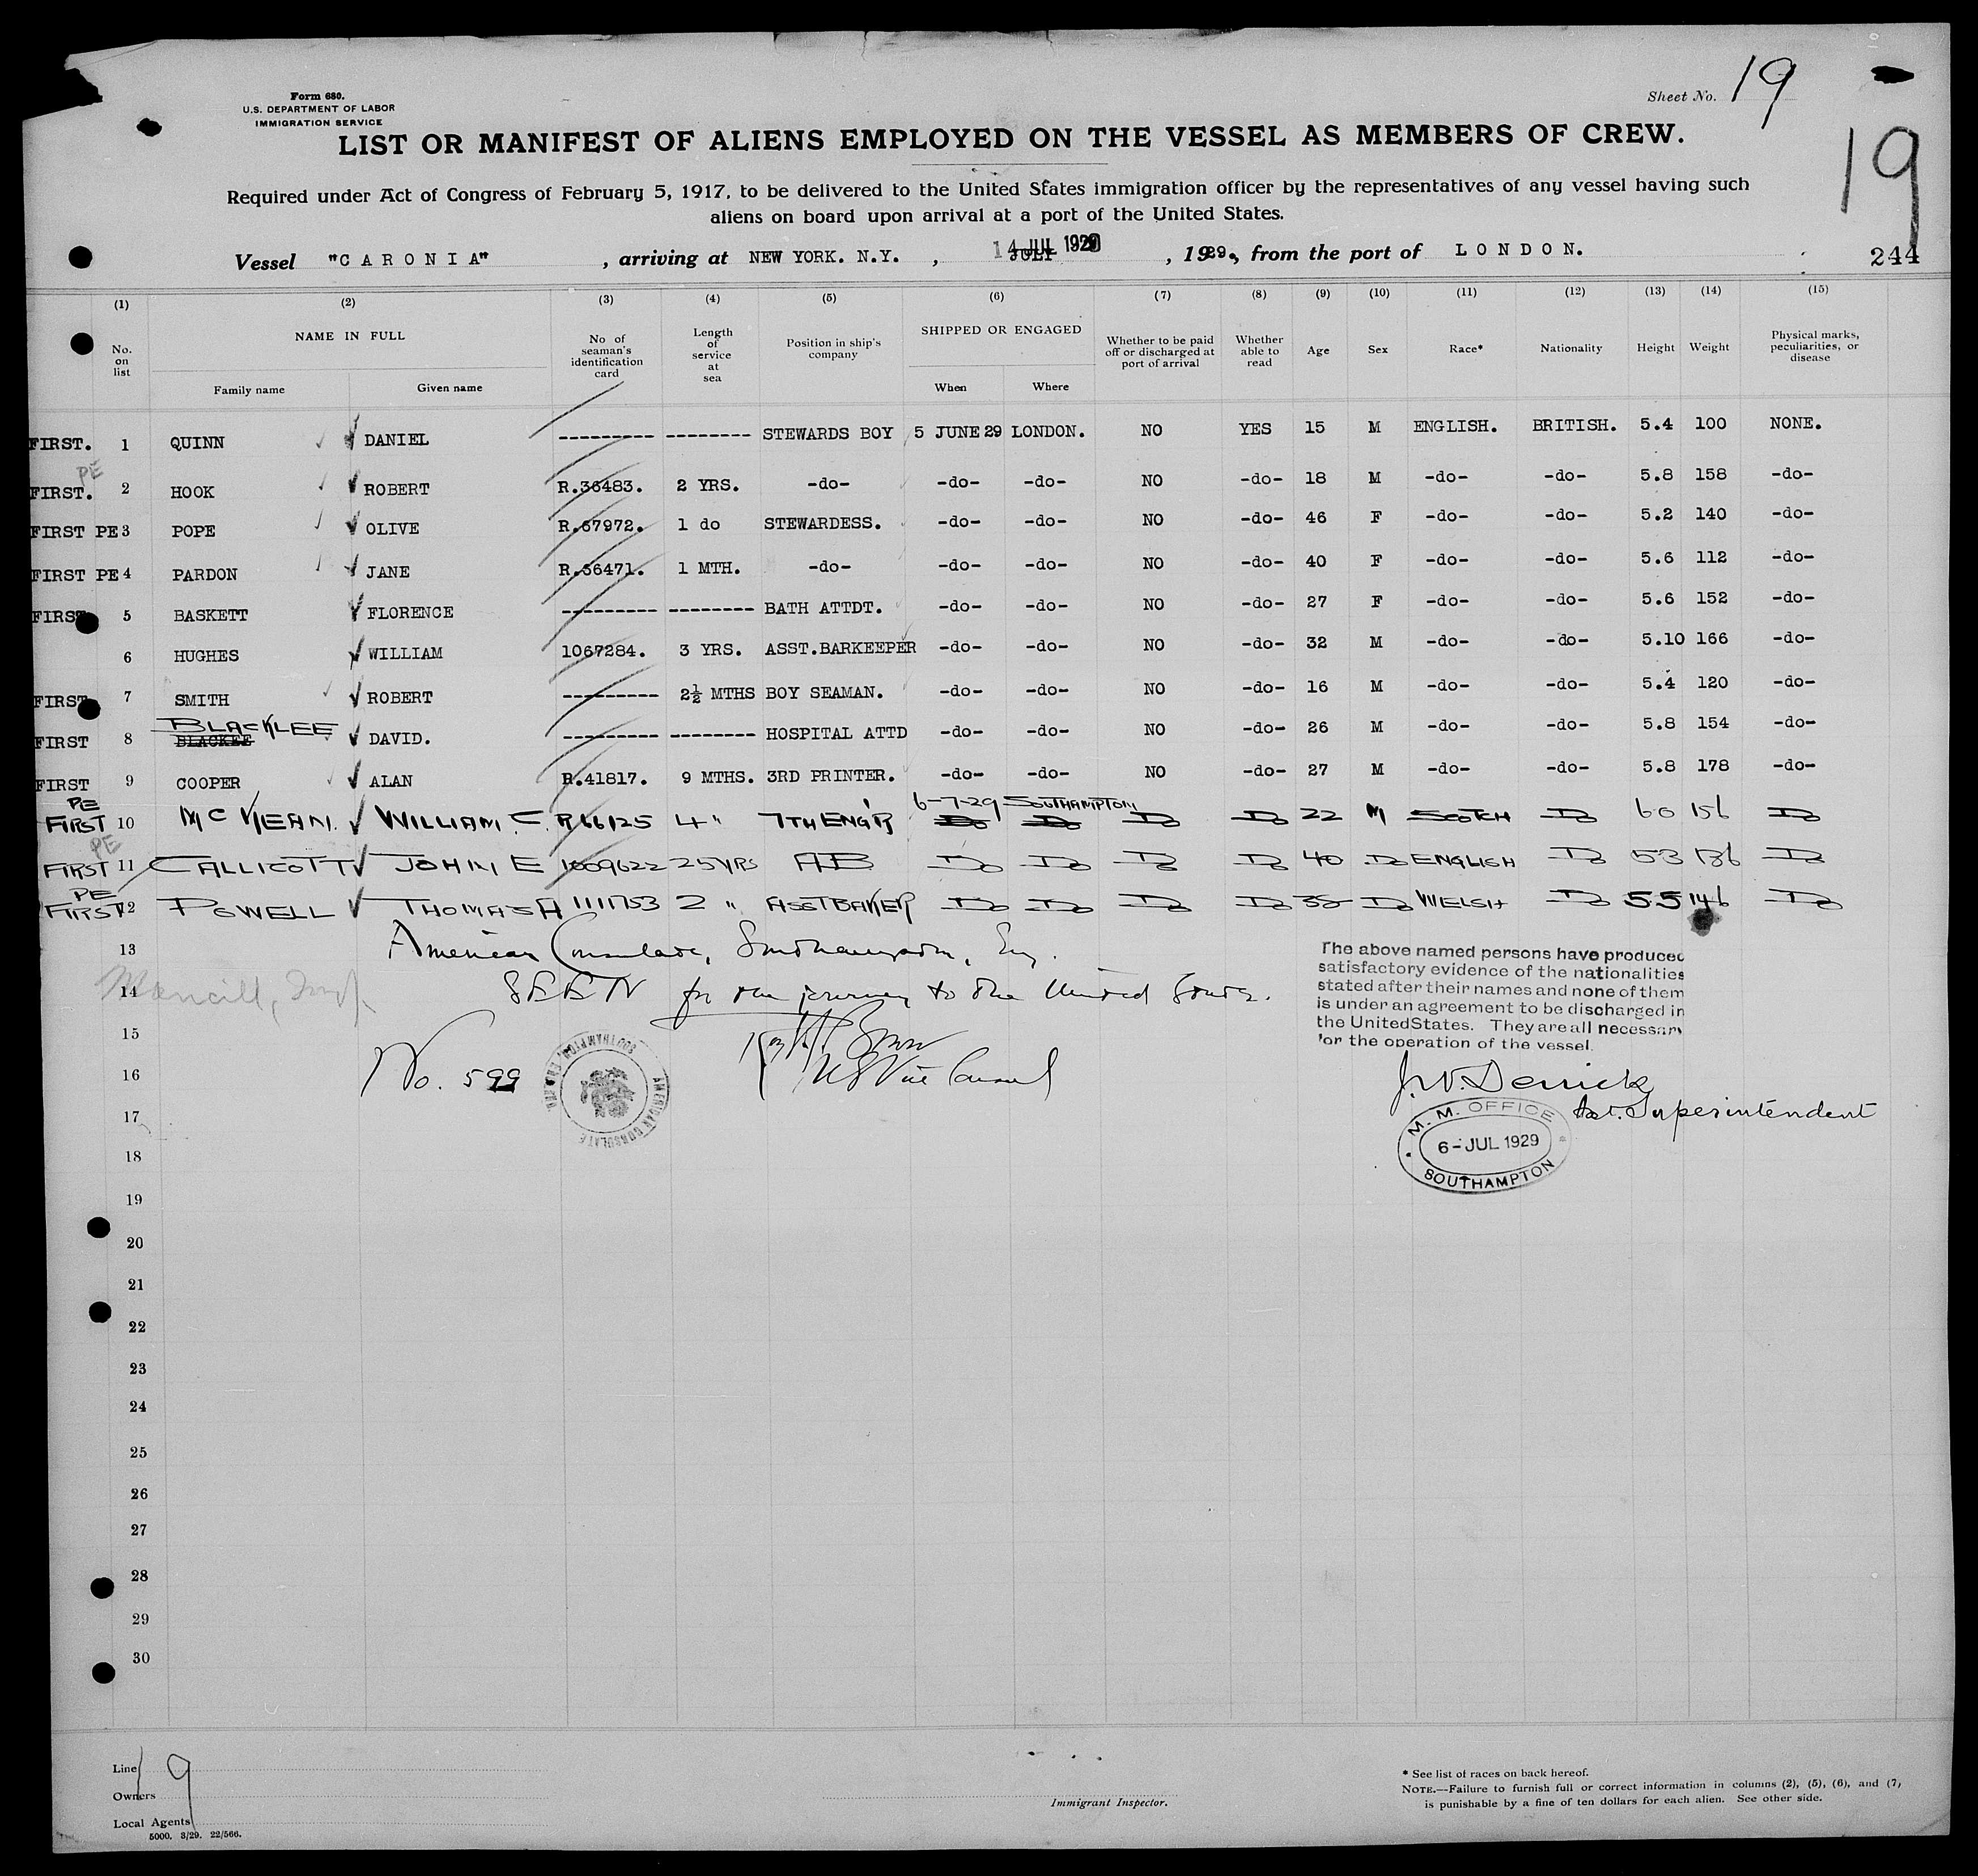 Form 680.
U.S. DEPARTMENT OF LABOR
IMMIGRATION SERVICE
Sheet No. 19
19
LIST OR MANIFEST OF ALIENS EMPLOYED ON THE VESSEL AS MEMBERS OF CREW.
Required under Act of Congress of February 5, 1917, to be delivered to the United States immigration officer by the representatives of any vessel having such
aliens on board upon arrival at a port of the United States.
Vessel "CARONIA" , arriving at NEW YORK. N.Y. , 14 JUL 1929 JULY , 1929., from the port of LONDON.
244
(1) (2) (3) (4) (5) (6) (7) (8) (9) (10) (11) (12) (13) (14) (15)
No. on list NAME IN FULL Family name Given name No of seaman's identification card Length of service at sea Position in ship's company SHIPPED OR ENGAGED When Where Whether to be paid off or discharged at port of arrival Whether able to read Age Sex Race* Nationality Height Weight Physical marks, peculiarities, or disease
FIRST. 1 QUINN DANIEL --------- -------- STEWARDS BOY 5 JUNE 29 LONDON. NO YES 15 M ENGLISH. BRITISH. 5.4 100 NONE.
PE
FIRST. 2 HOOK ROBERT R.36483. 2 YRS. -do- -do- -do- NO -do- 18 M -do- -do- 5.8 158 -do-
FIRST PE 3 POPE OLIVE R.67972. 1 do STEWARDESS. -do- -do- NO -do- 46 F -do- -do- 5.2 140 -do-
FIRST PE 4 PARDON JANE R.56471. 1 MTH. -do- -do- -do- NO -do- 40 F -do- -do- 5.6 112 -do-
FIRST 5 BASKETT FLORENCE --------- -------- BATH ATTDT. -do- -do- NO -do- 27 F -do- -do- 5.6 152 -do-
6 HUGHES WILLIAM 1067284. 3 YRS. ASST.BARKEEPER -do- -do- NO -do- 32 M -do- -do- 5.10 166 -do-
FIRST 7 SMITH ROBERT --------- 2½ MTHS BOY SEAMAN. -do- -do- NO -do- 16 M -do- -do- 5.4 120 -do-
BLACKLEE
FIRST 8 BLACKEE DAVID. --------- -------- HOSPITAL ATTD -do- -do- NO -do- 26 M -do- -do- 5.8 154 -do-
FIRST 9 COOPER ALAN R.41817. 9 MTHS. 3RD PRINTER. -do- -do- NO -do- 27 M -do- -do- 5.8 178 -do-
PE 6-7-29 SOUTHAMPTON
FIRST 10 McKEAN. WILLIAM. C. R66125 4 " 7TH ENG'R Do Do Do Do 22 M SCOTCH Do 6 0 156 Do
PE
FIRST 11 CALLICOTT JOHN E 1009622 25 YRS AB Do Do Do Do 40 Do ENGLISH Do 5 3 136 Do
PE
FIRST 12 POWELL THOMAS A 1111753 2 " ASST BAKER Do Do Do Do 38 Do WELSH Do 5 5 146 Do
13
American Consulate, Southampton, Eng.
14
SEEN for the journey to the United States.
15
16
No. 599
US Vice Consul
AMERICAN CONSULATE SOUTHAMPTON, ENGLAND
The above named persons have produced
satisfactory evidence of the nationalities
stated after their names and none of them
is under an agreement to be discharged in
the United States. They are all necessary
for the operation of the vessel.
J.W. Derrick
Ast. Superintendent
M. M. OFFICE
6 - JUL 1929
SOUTHAMPTON
17
18
19
20
21
22
23
24
25
26
27
28
29
30
Line
Owners
Local Agents
19
5000. 3/29. 22/566.
Immigrant Inspector.
* See list of races on back hereof.
NOTE.—Failure to furnish full or correct information in columns (2), (5), (6), and (7)
is punishable by a fine of ten dollars for each alien. See other side.